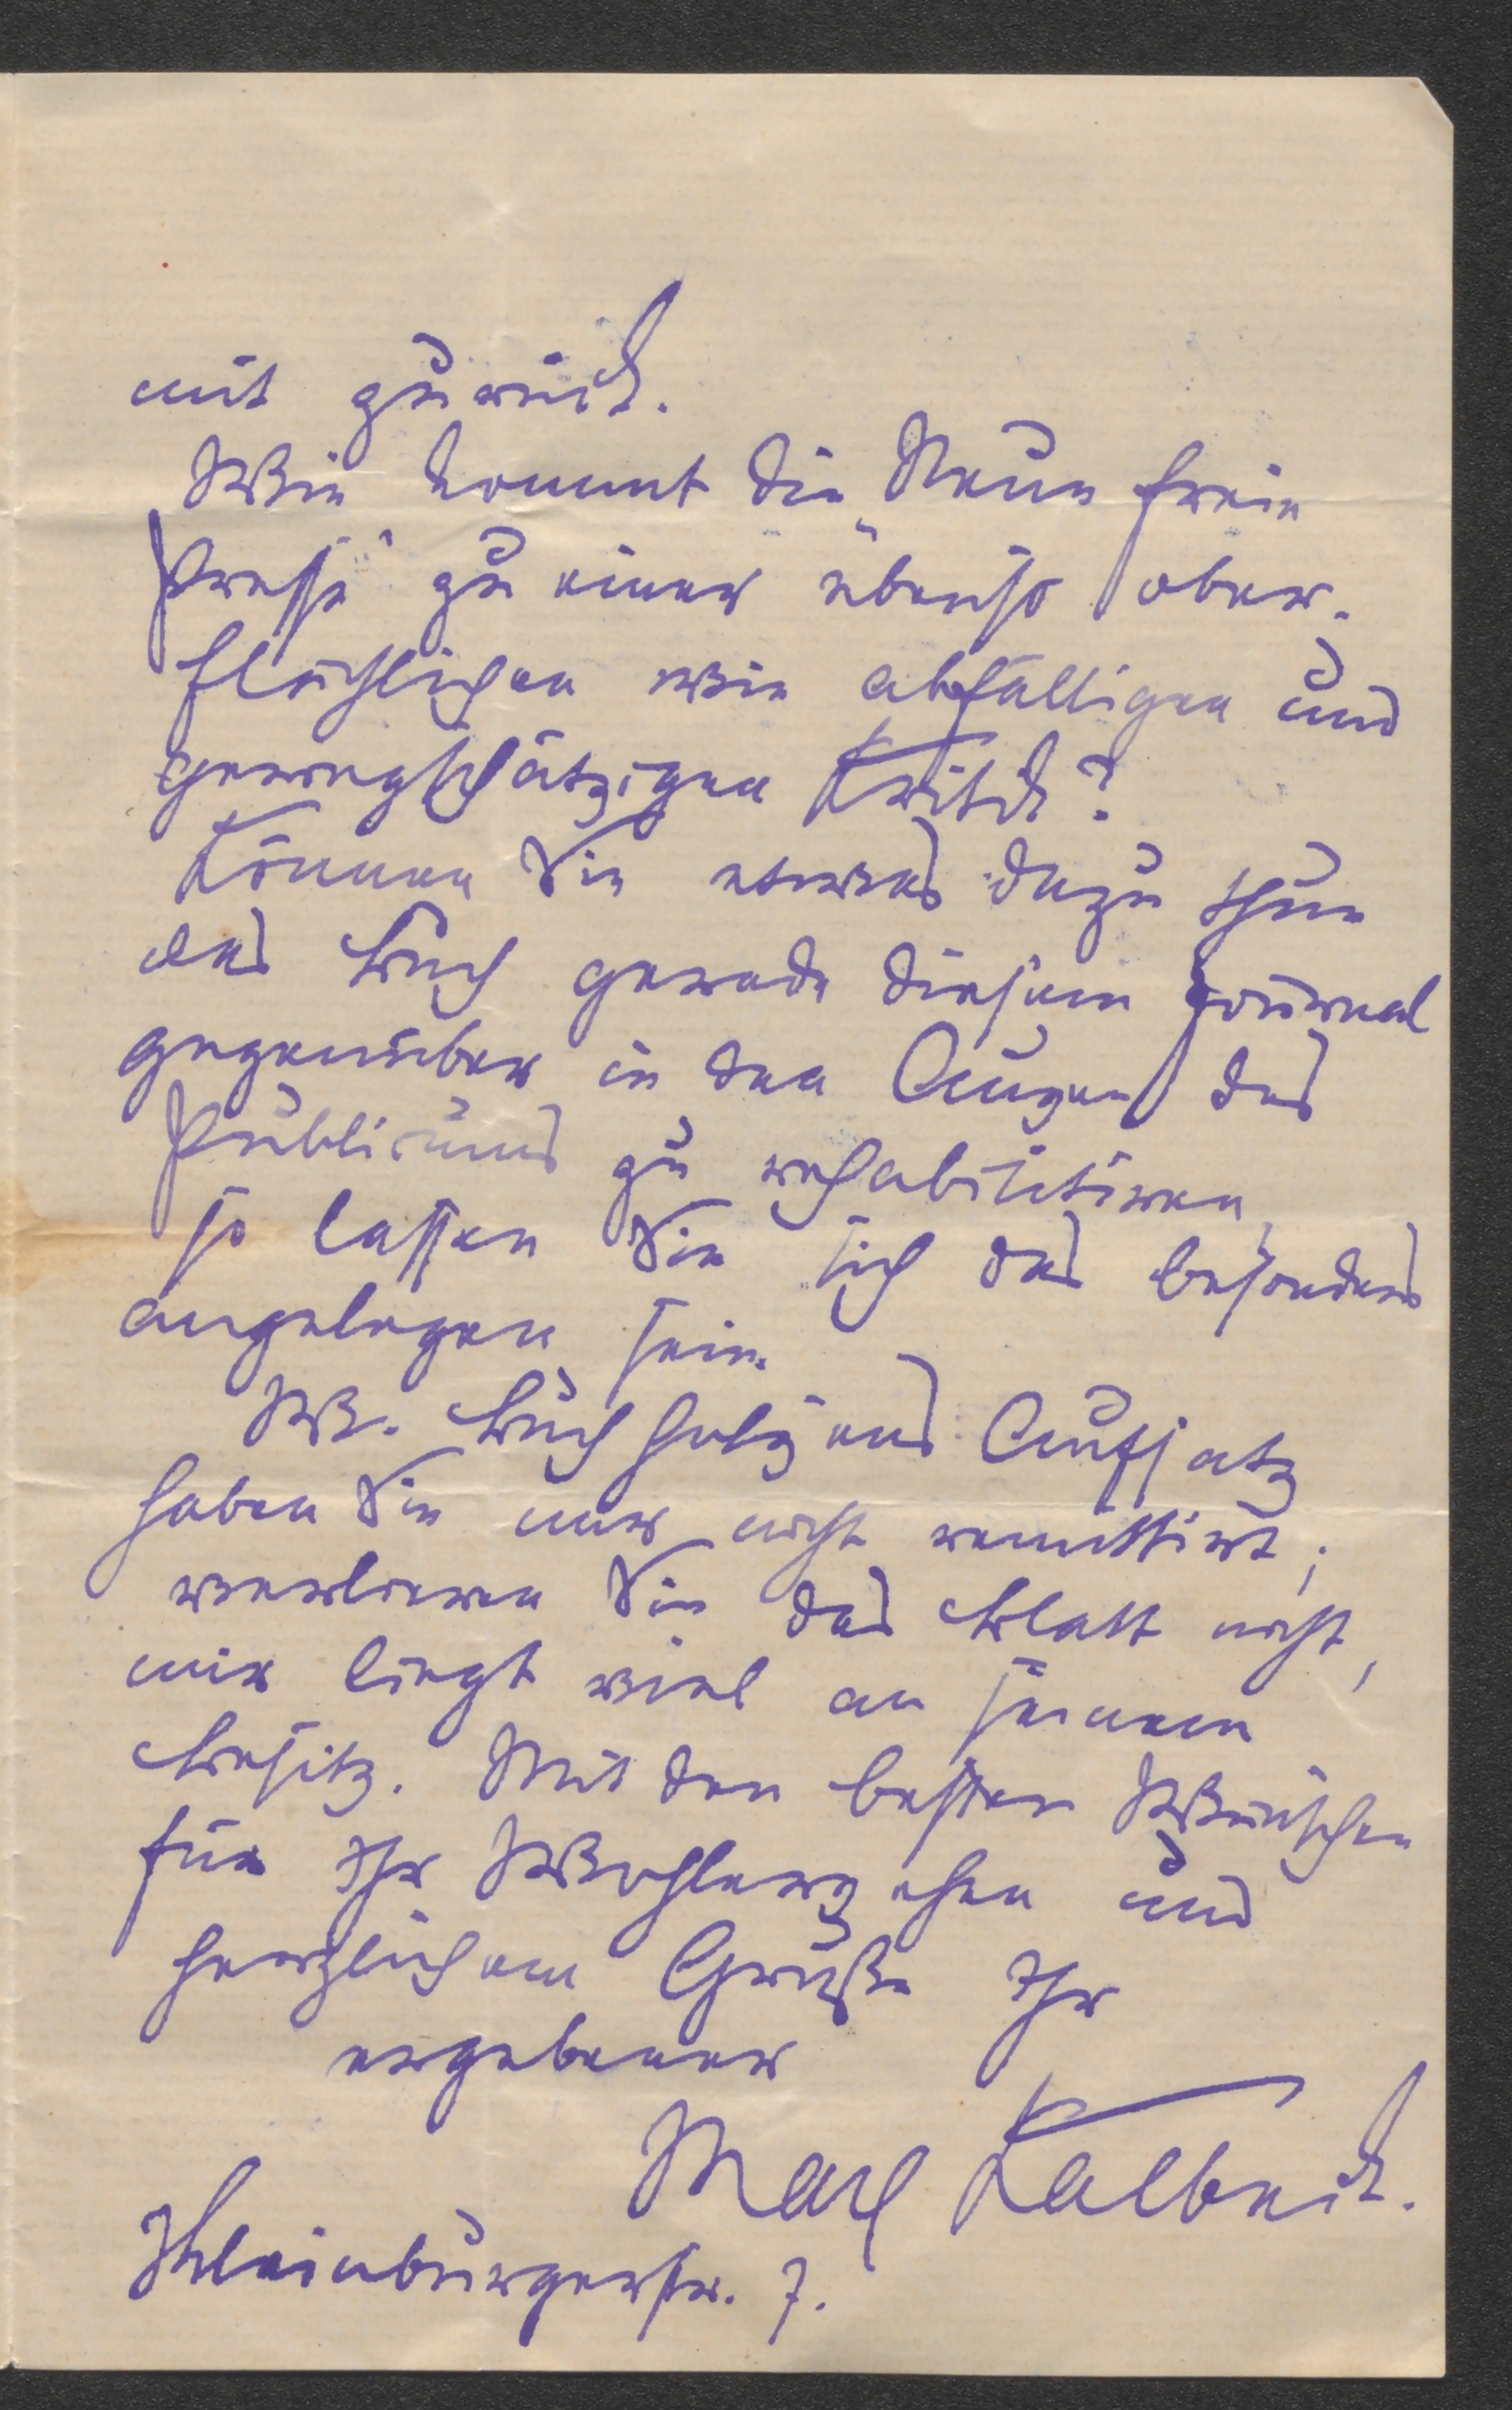 mit zurück.
Wie kommt die „Neue freie
Presse" zu einer ebenso ober-
flächlichen wie abfälligen und
geringschätzigen Kritik?
Können Sie etwas dazu thun
das Buch gerade diesem Journal
gegenüber in den Augen des
Publicums zu rehabilitiren,
so lassen Sie sich das besonders
angelegen sein.
W. Buchholzens Aufsatz
haben Sie mir nicht remittirt;
verlieren Sie das Blatt nicht,
mir liegt viel an seinem
Besitz. Mit den besten Wünschen
für Ihr Wohlergehen und
herzlichem Gruße Ihr
ergebener
Max Kalbeck.
Kleinburgerstr. 7.